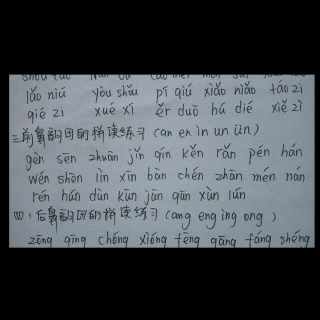 lǎo niú yòu shǒu pí qiú xiǎo niǎo táo zi
qié zi xué xí ěr duǒ hú dié xiě zì
三、前鼻韵母的拼读练习(an en in un ün)
gēn sēn zhuān jǐn qín kěn rǎn pén hán
wén shēn ìn xīn bàn chén zhān mén nán
rén hán dùn kūn jūn qūn xùn lún
四、后鼻韵母的拼读练习(ang eng ing ong)
zōng qīng chóng xióng fēng gāng fáng shéng